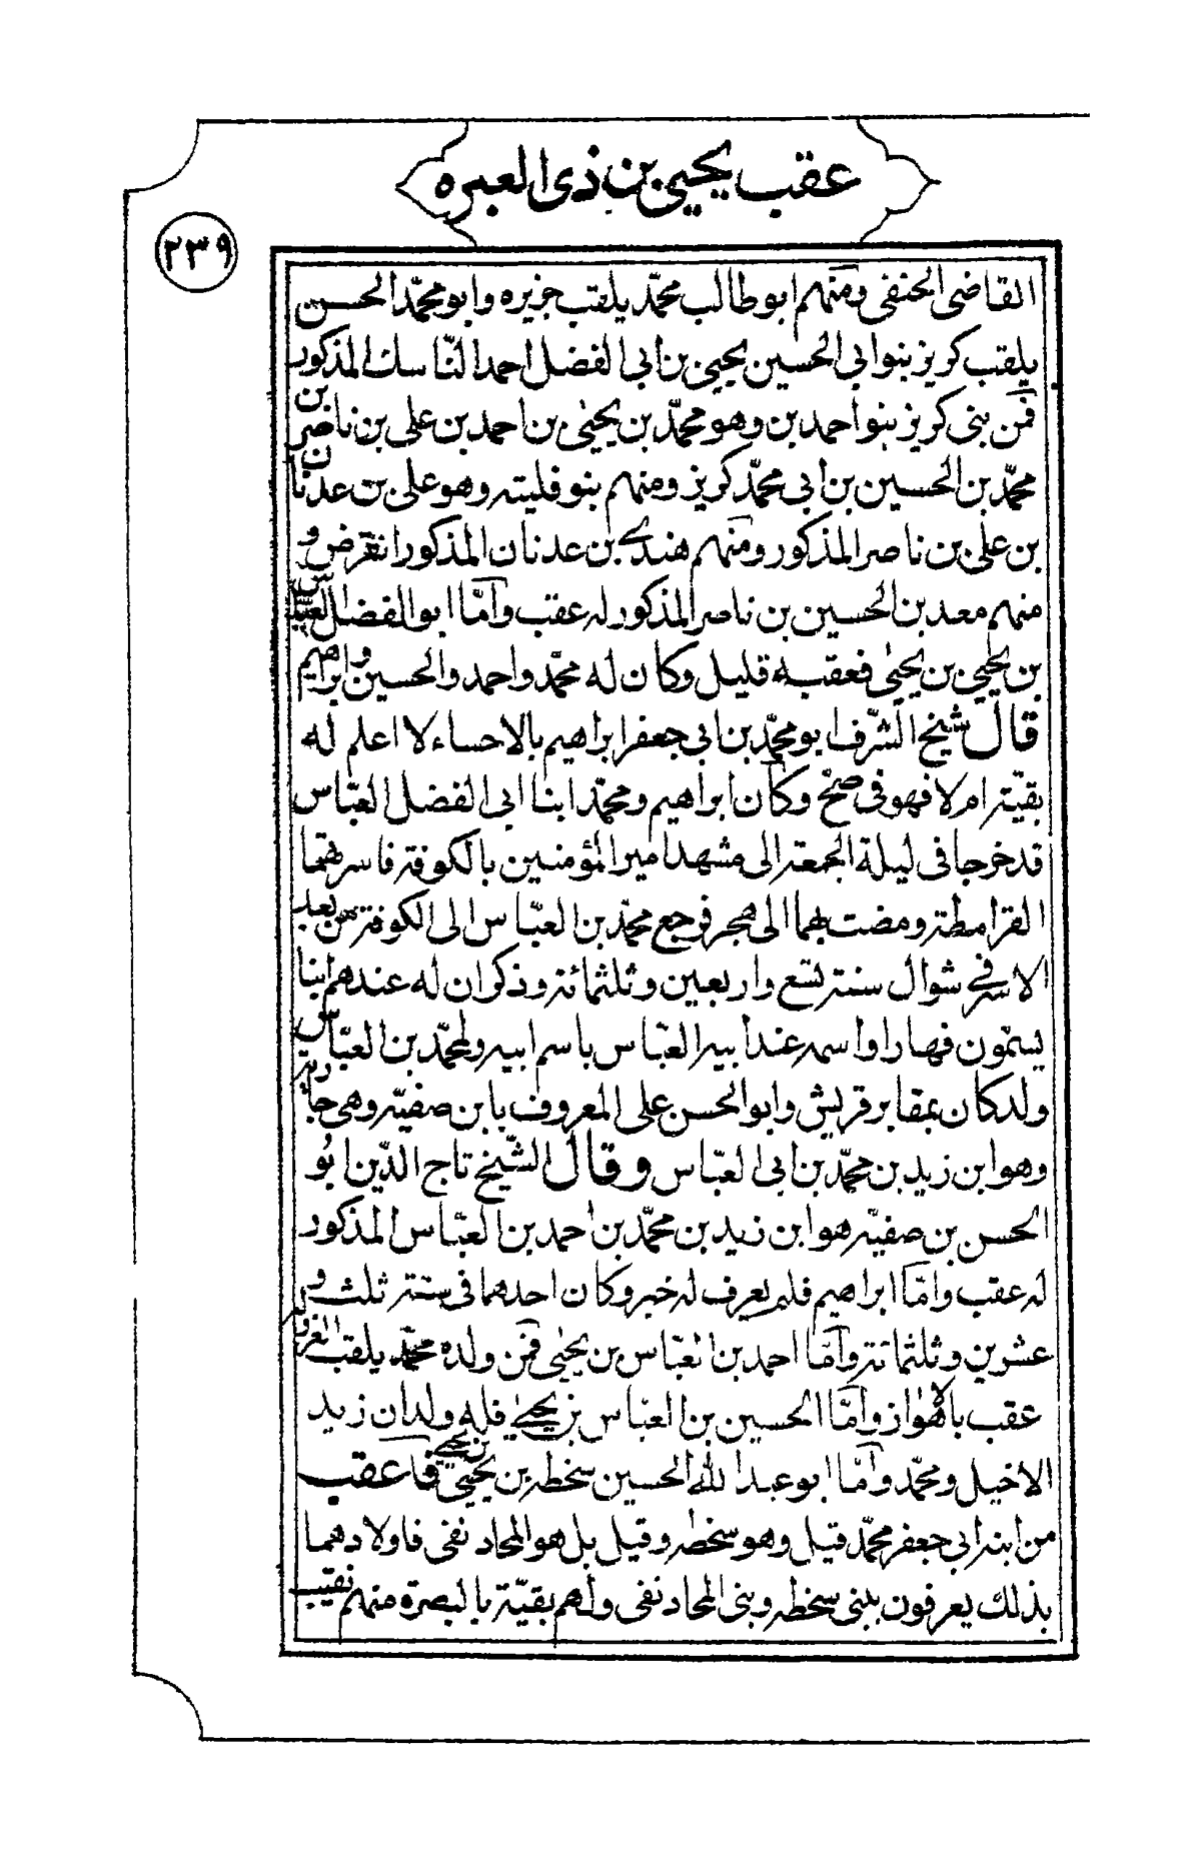 عقب يحيى بن ذى العبره
٢٣٩
القاضى الحنفى ومنهم ابو طالب محمّد يلقب جزيره وابو محمّد الحسن
يلقب كريز بنو ابي الحسين يحيى بن ابي الفضل احمد النّاسك المذكور
فمن بنى كريز بنو احمد بن وهو محمّد بن يحيى بن احمد بن على بن ناصر بن
محمّد بن الحسين بن ابي محمّد كريز ومنهم بنو فليته وهو على بن عدنان
بن على بن ناصر المذكور ومنهم هندى بن عدنان المذكور انقرض و
منهم معد بن الحسين بن ناصر المذكور له عقب وامّا ابو الفضل العبّاس
بن يحيى بن يحيى فعقبه قليل وكان له محمّد واحمد والحسين وابراهيم
قال شيخ الشّرف ابو محمّد بن ابي جعفر ابراهيم بالاحساء لا اعلم له
بقيّة ام لا فهو فى صحّ وكان ابراهيم ومحمّد ابنا ابى الفضل العبّاس
قد خرجا فى ليلة الجمعة الى مشهد امير المؤمنين بالكوفة فاسرتهما
القرامطة ومضت بهما الى هجر فرجع محمّد بن العبّاس الى الكوفة من بعد
الاسر في شوال سنة تسع واربعين وثلثمائة وذكر ان له عندهم ابنا
يسمّون فهارا واسمه عند ابيه العبّاس باسم ابيه ولمحمّد بن العبّاس
ولد كان بمقابر قريش وابو الحسن على المعروف بابن صفيّه وهى جارية
وهو ابن زيد بن محمّد بن ابى العبّاس وقال الشّيخ تاج الدّين ابو
الحسن بن صفيّه هو ابن زيد بن محمّد بن احمد بن العبّاس المذكور
له عقب وامّا ابراهيم فلم يعرف له خبر وكان احدهما فى سنة ثلث و
عشرين وثلثمائة وامّا احمد بن العبّاس بن يحيى فمن ولده محمّد يلقب له
عقب بالاهواز وامّا الحسين بن العبّاس بن يحيى فله ولدان زيد
الاخيل ومحمّد وامّا ابو عبد الله الحسين سخطه بن يحيى بن يحيى فاعقب
من ابنه ابى جعفر محمّد قيل وهو سخطه وقيل بل هو المحادنقى فاولادهما
بذلك يعرفون ببنى سخطه وبنى المحادنقى ولهم بقيّة بالبصرة منهم نقيب